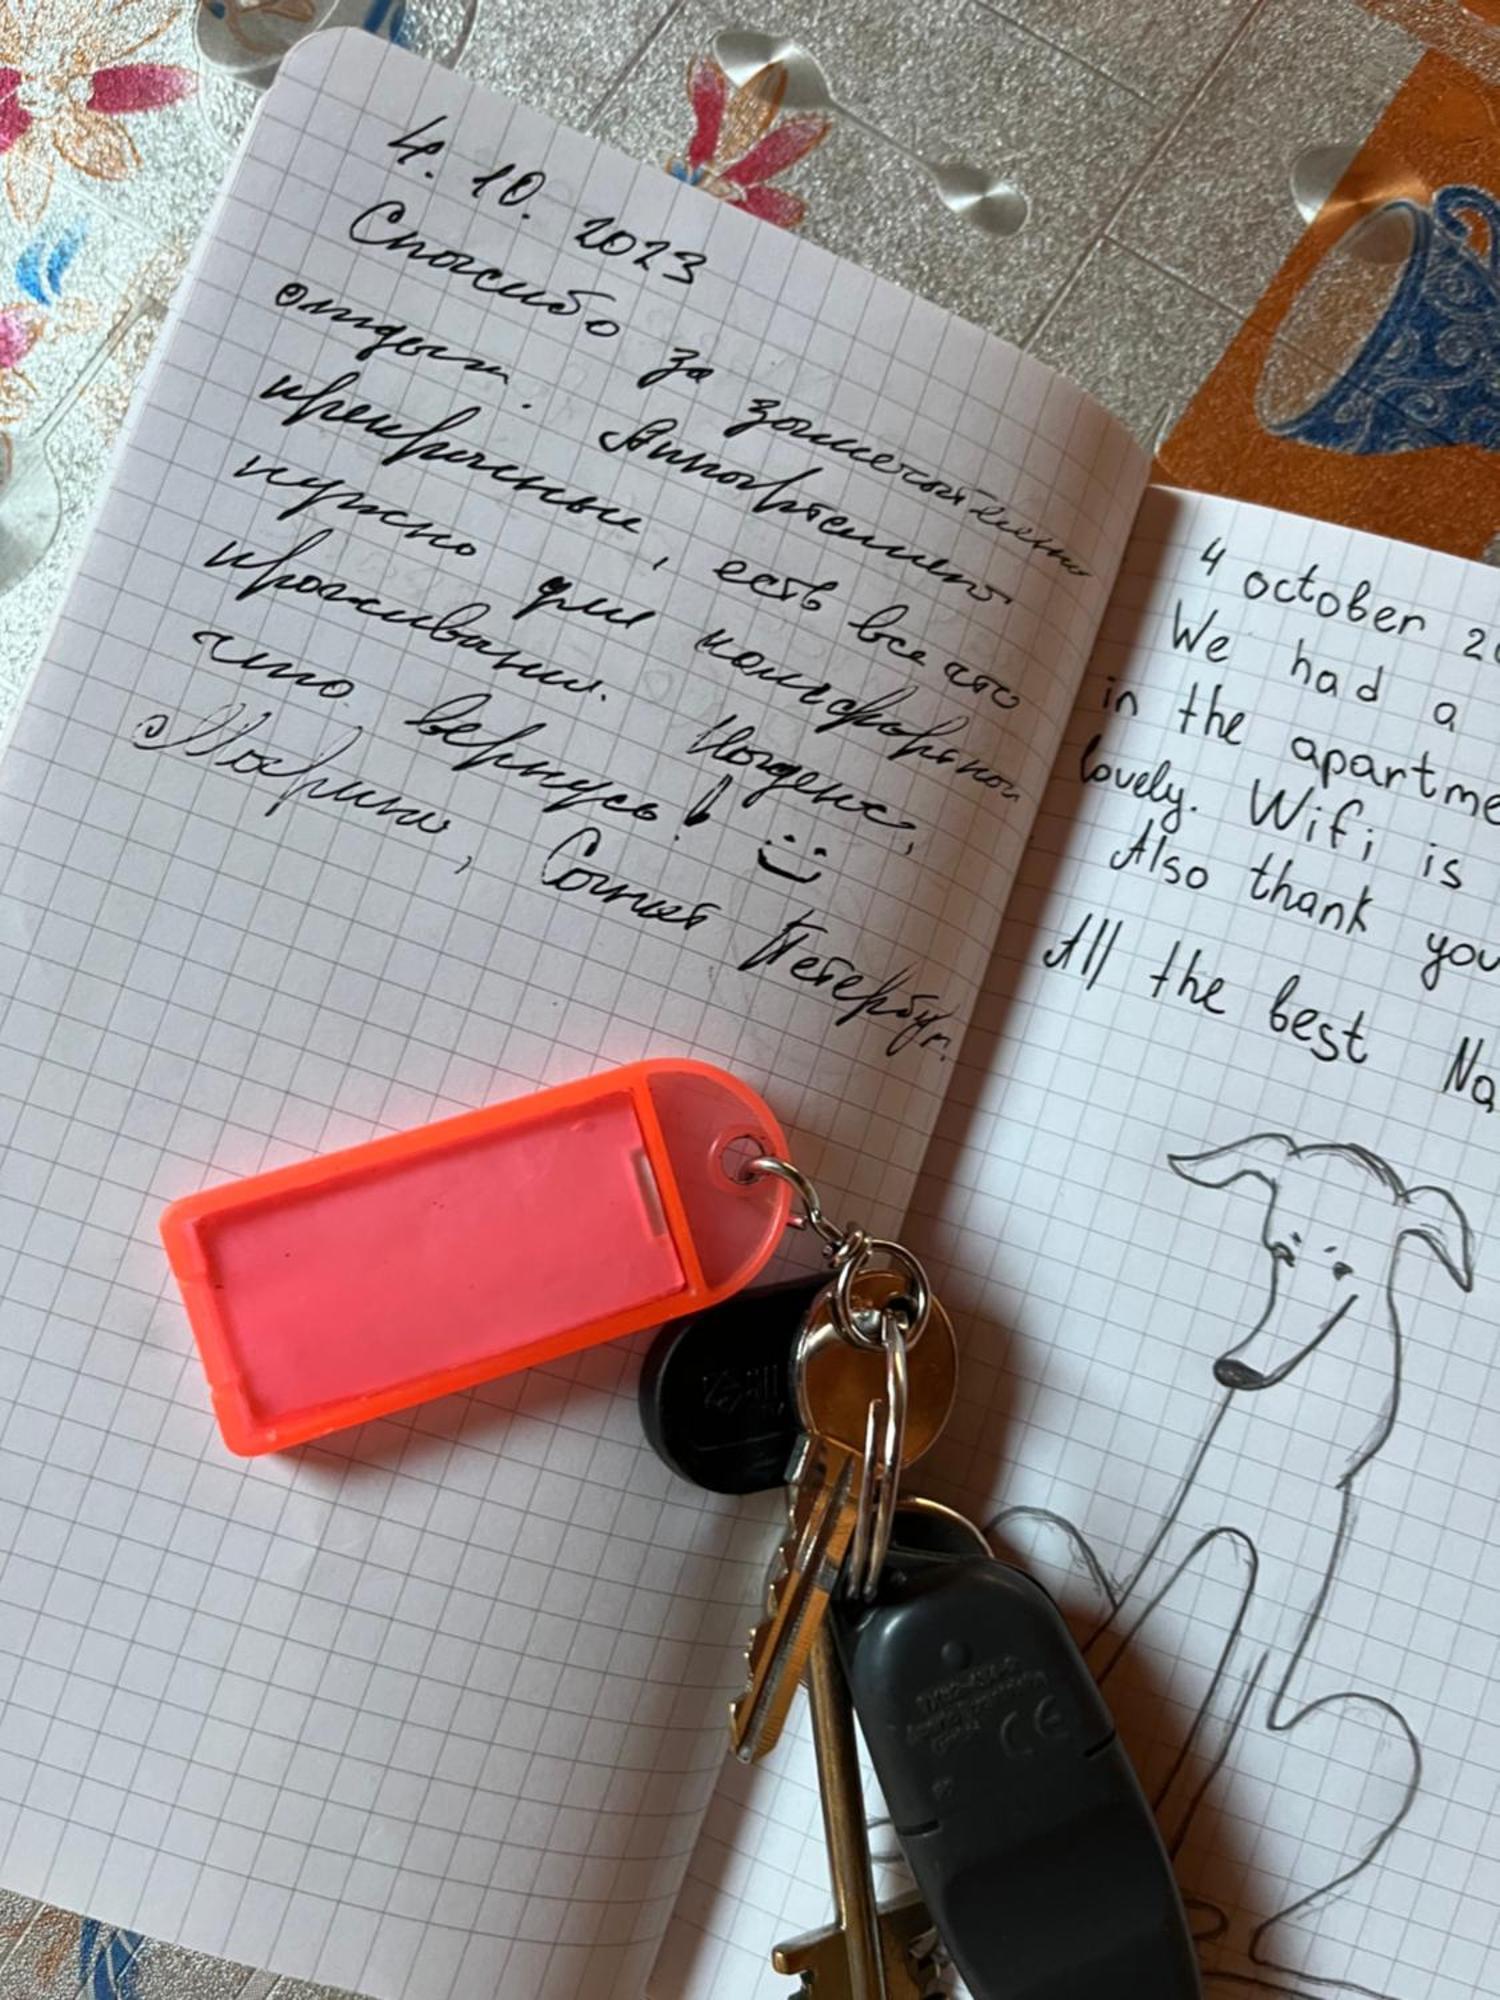 4. 10. 2023
Спасибо за замечательный
отдых. Аппартаменты
прекрасные, есть все что
нужно для комфортного
проживания. Надеюсь,
что вернусь! 
Марина, Санкт Петербург.
4 october 20
We had a
in the apartme
lovely. Wifi is
Also thank you
All the best Na
CE